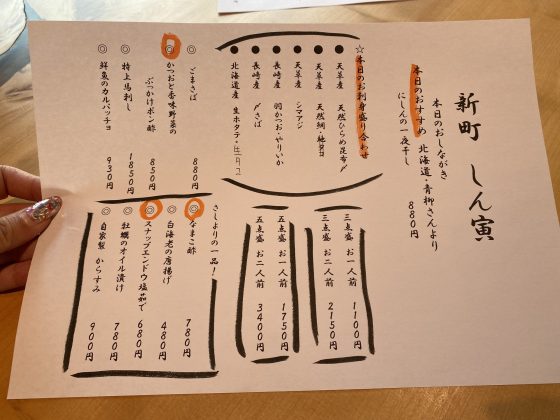 新町 しん寅
本日のおしながき
本日のおすすめ 北海道・青柳さんより
にしんの一夜干し
880円
☆本日のお刺身盛り合わせ
● 天草産 天然ひらめ昆布〆
● 天草産 天然鯛・地ダコ
● 天草産 シマアジ
● 長崎産 羽かつお・やりいか
● 長崎産 〆さば
● 北海道産 生ホタテ・生ウニ
◎ ごまさば 880円
◎ かつおと香味野菜の
ぶっかけポン酢 850円
◎ 特上馬刺し 1850円
◎ 鮮魚のカルパッチョ 930円
三点盛 お一人前 1100円
三点盛 お二人前 2150円
五点盛 お一人前 1750円
五点盛 お二人前 3400円
さしよりの一品!
◎ なまこ酢 780円
◎ 白海老の唐揚げ 480円
◎ スナップエンドウ塩茹で 680円
◎ 牡蠣のオイル漬け 780円
◎ 自家製 からすみ 900円